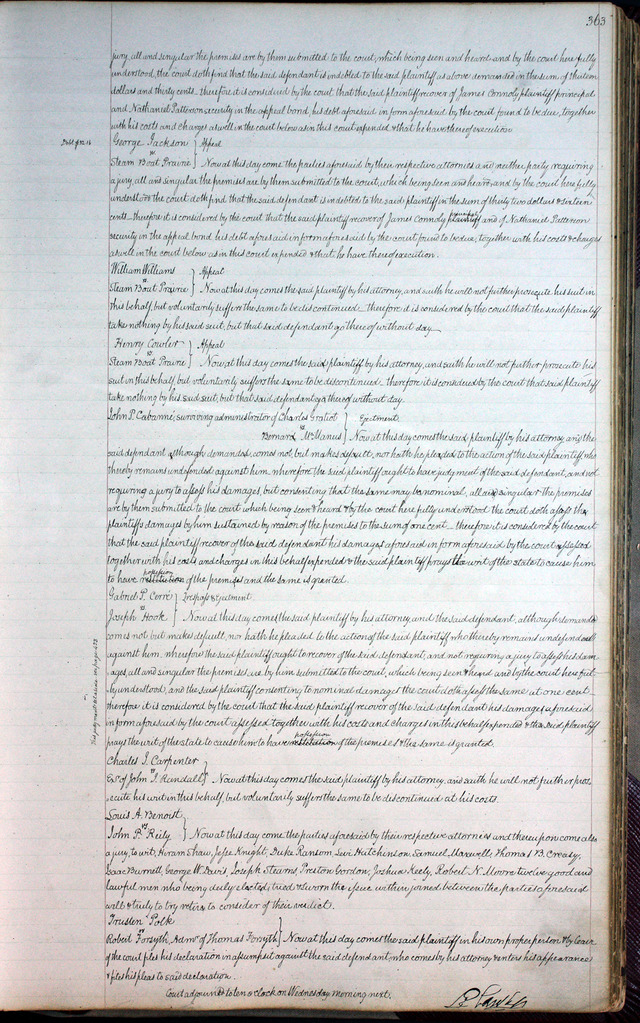 363
jury, all and singular the premises are by them submitted to the court, which being seen and heard and by the court here fully
understood, the court doth find that the said defendant is indebted to the said plaintiff as above demanded in the sum of thirteen
dollars and thirty cents. therefore it is considered by the court that the said plaintiff recover of James Connoly plaintiff principal
and Nathaniel Patterson security in the appeal bond, his debt aforesaid in form aforesaid by the court found to be due, together
with his costs and charges as well in the court below as in this court expended & that he have thereof execution
George Jackson } Appeal
vs
Steam Boat Prairie } Now at this day come the parties aforesaid by their respective attornies and neither party requiring
a jury, all and singular the premises are by them submitted to the court, which being seen and heard, and by the court here fully
understood the court doth find that the said defendant is indebted to the said plaintiff in the sum of thirty two dollars & sixteen
cents therefore it is considered by the court that the said plaintiff recover of James Connoly principal plaintiff and of Nathaniel Patterson
security in the appeal bond his debt aforesaid in form aforesaid by the court found to be due, together with his costs & charges
as well in the court below as in this court expended & that he have thereof execution.
William Williams } Appeal
vs
Steam Boat Prairie } Now at this day comes the said plaintiff by his attorney, and saith he will not further prosecute his suit in
this behalf, but voluntarily suffers the same to be discontinued therefore it is considered by the court that the said plaintiff
take nothing by his said suit, but that said defendant go thereof without day
Henry Cowler } Appeal
vs
Steam Boat Prairie } Now at this day comes the said plaintiff by his attorney, and saith he will not further prosecute his
suit in this behalf, but voluntarily suffers the same to be discontinued. therefore it is considered by the court that said plaintiff
take nothing by his said suit, but that said defendant go thereof without day.
John P. Cabanné, surviving administrator of Charles Gratiot } Ejectment.
vs
Bernard McManus } Now at this day comes the said plaintiff by his attorney, and the
said defendant although demanded, comes not but makes default, nor hath he pleaded to the action of the said plaintiff who
thereby remains undefended against him, wherefore the said plaintiff ought to have judgment of the said defendant, and not
requiring a jury to assess his damages, but consenting that the same may be nominal, all and singular the premises
are by them submitted to the court which being seen & heard & by the court here fully understood the court doth assess the
plaintiffs damages by him sustained by reason of the premises to the sum of one cent therefore it is considered by the court
that the said plaintiff recover of the said defendant his damages aforesaid in form aforesaid by the court assessed
together with his costs and charges in this behalf expended & the said plaintiff prays the writ of the state to cause him
to have possession restitution of the premises and the same is granted.
Gabriel P. Cerré } Trespass & Ejectment
vs
Joseph Hook } Now at this day comes the said plaintiff by his attorney, and the said defendant, although demanded
comes not but makes default, nor hath he pleaded to the action of the said plaintiff who thereby remains undefended
against him, wherefore the said plaintiff ought to recover of the said defendant, and not requiring a jury to assess his dam-
ages, all and singular the premises are by him submitted to the court, which being seen & heard and by the court here ful-
ly understood, and the said plaintiff consenting to nominal damages the court doth assess the same at one cent.
therefore it is considered by the court that the said plaintiff recover of the said defendant his damages aforesaid
in form aforesaid by the court assessed together with his costs and charges in this behalf expended & the said plaintiff
prays the writ of the state to cause him to have possession restitution of the premises & the same is granted.
Charles I. Carpenter
vs
Exr of John J. Randall } Now at this day comes the said plaintiff by his attorney, and saith he will not further pros-
ecute his writ in this behalf, but voluntarily suffers the same to be discontinued at his costs.
Louis A. Benoist
vs
John P. Reily } Now at this day come the parties aforesaid by their respective attornies and thereupon come also
a jury, to wit, Hiram Shaw, Jesse Knight, Duke Ransom, Levi Hutchinson, Samuel Maxwell, Thomas B. Creasy,
Isaac Burnett, George W. Davis, Joseph Stearns, Preston Gordon, Joshua Keely, Robert N. Moore twelve good and
lawful men who being duly elected, tried & sworn the issue within joined between the parties aforesaid
well & truly to try retire to consider of their verdict.
Trusten Polk
vs
Robert Forsyth, Admr. of Thomas Forsyth } Now at this day comes the said plaintiff in his own proper person & by leave
of the court files his declaration in assumpsit against the said defendant, who comes by his attorney & enters his appearance
& files his pleas to said declaration.
Court adjourned to ten o clock on Wednesday morning next.